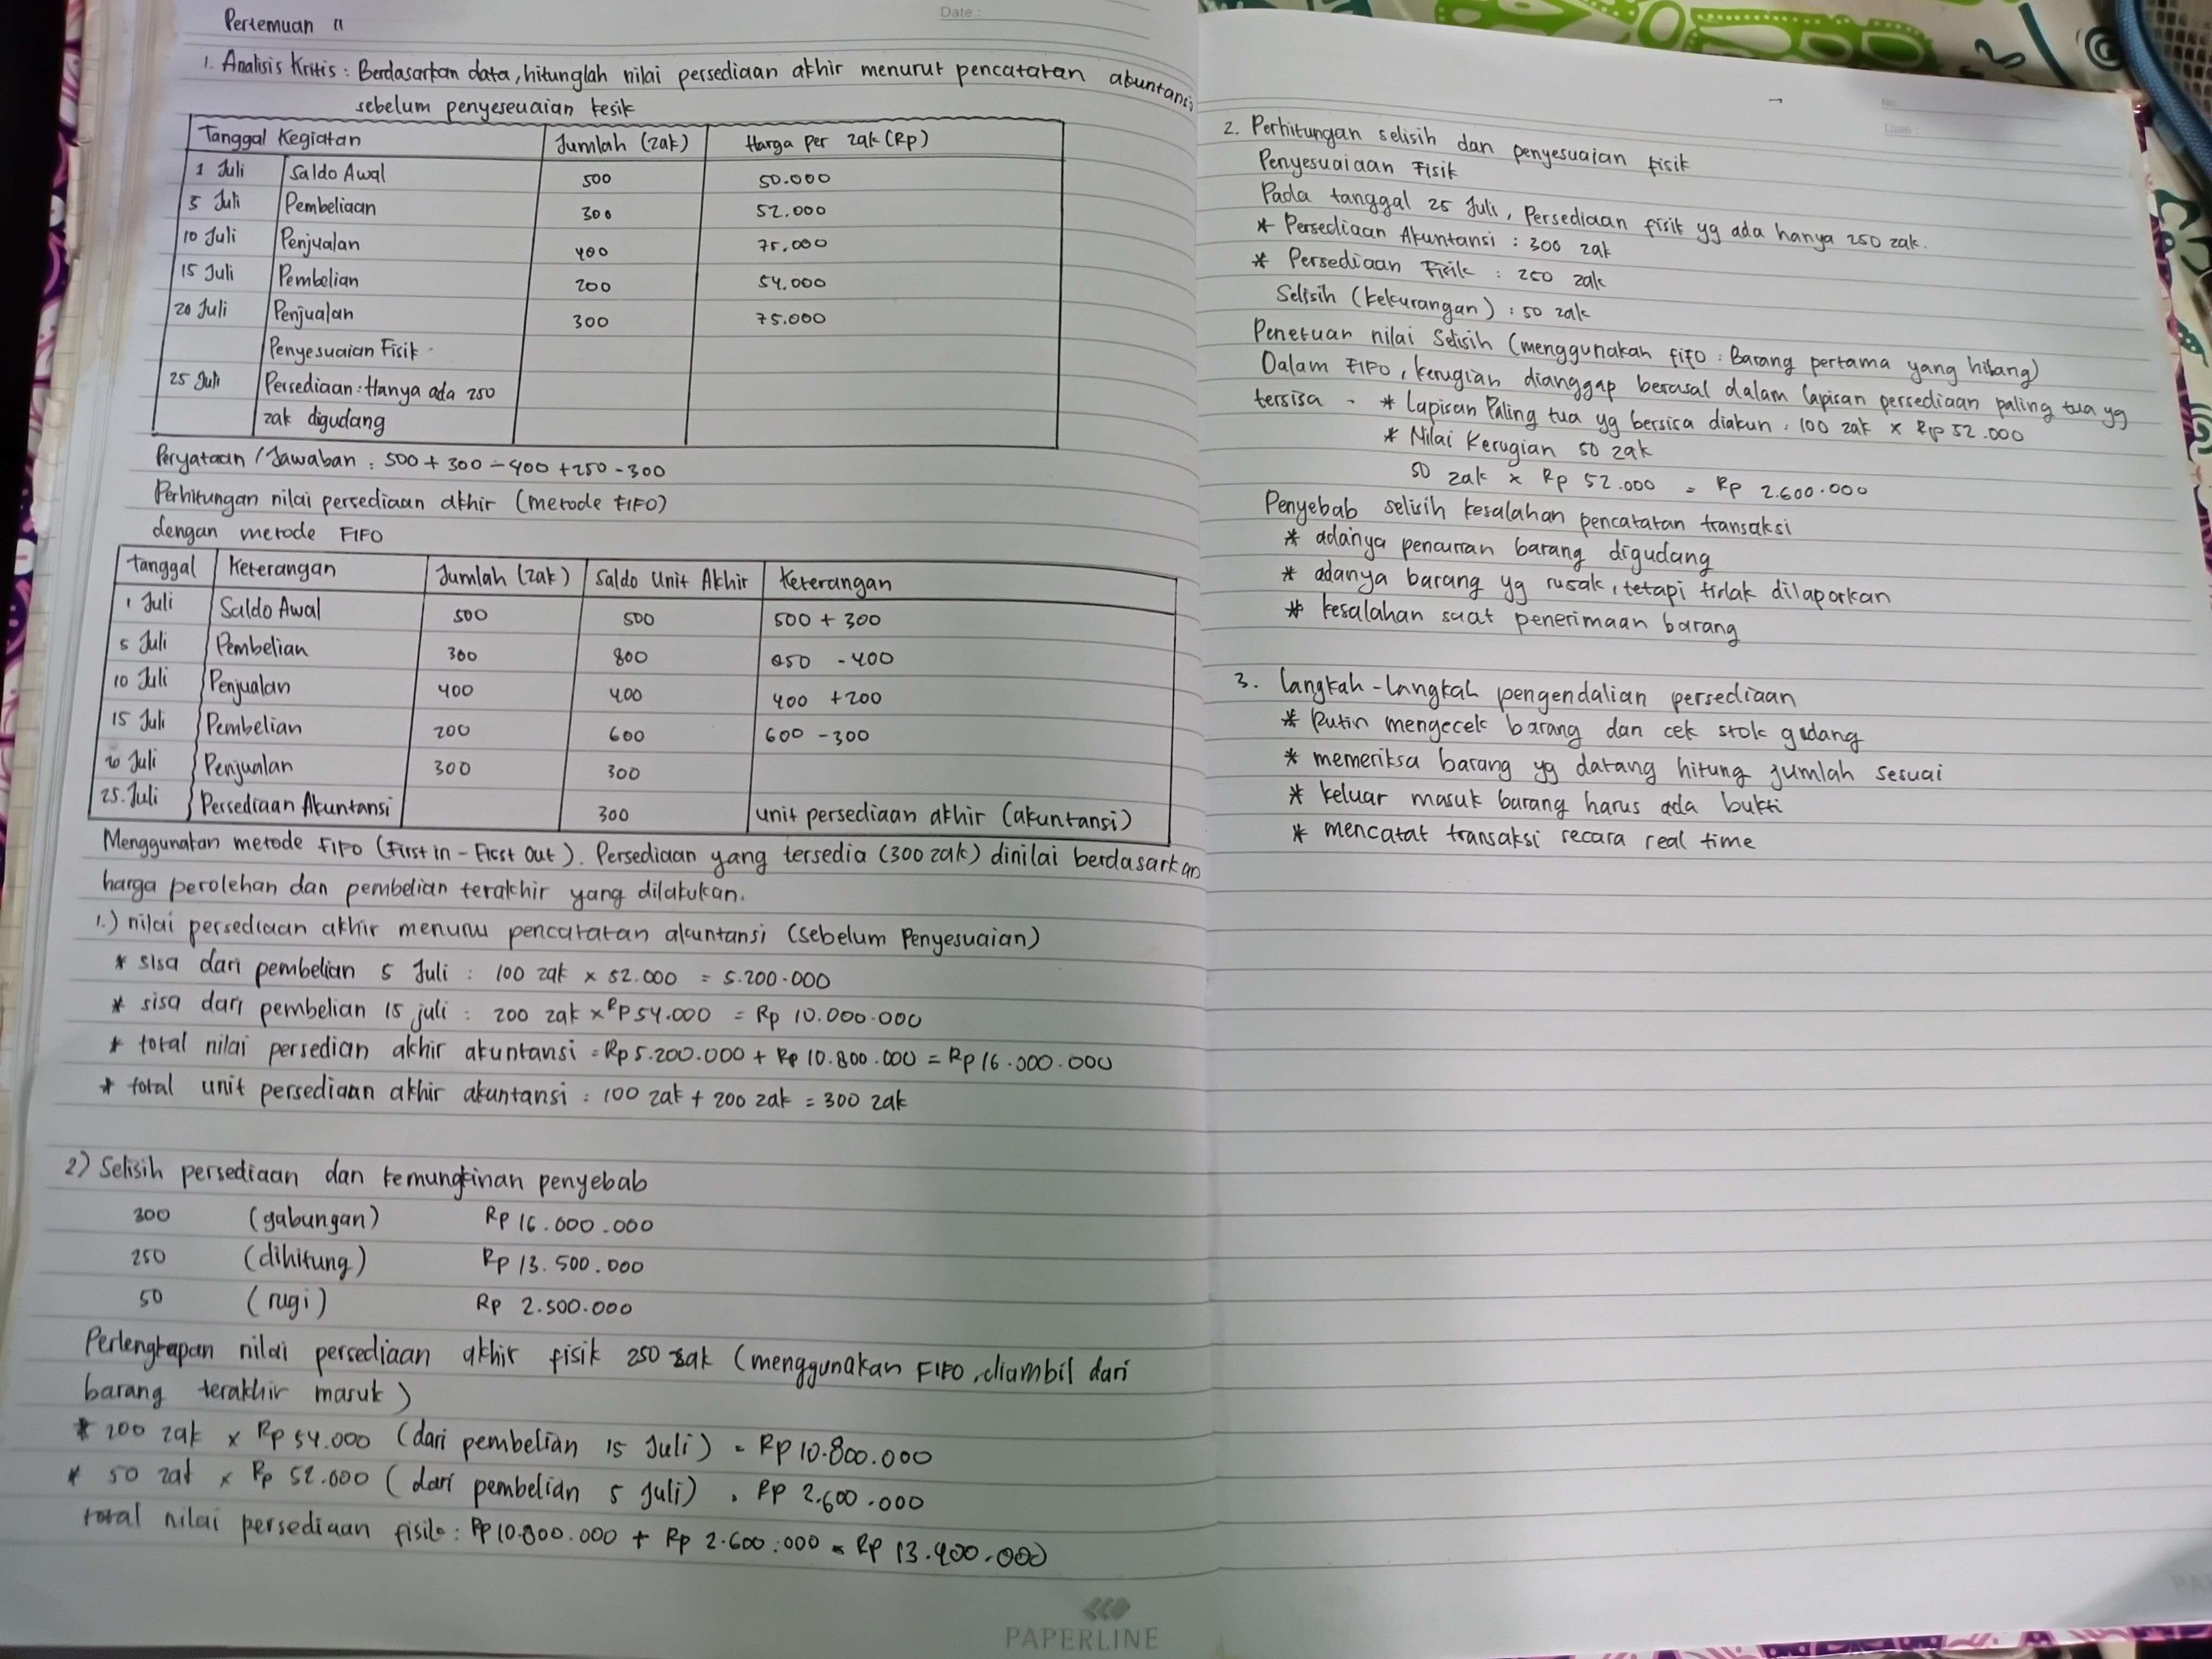 Date :
Pertemuan 11
1. Analisis Kritis : Berdasarkan data, hitunglah nilai persediaan akhir menurut pencatatan akuntansi
sebelum penyeseuaian fesik
Tanggal Kegiatan Jumlah (zak) Harga per zak (Rp)
1 Juli Saldo Awal 500 50.000
5 Juli Pembeliaan 300 52.000
10 Juli Penjualan 400 75.000
15 Juli Pembelian 200 54.000
20 Juli Penjualan 300 75.000
Penyesuaian Fisik
25 Juli Persediaan : Hanya ada 250
zak digudang
Peryataan / Jawaban : 500 + 300 - 400 + 250 - 300
Perhitungan nilai persediaan akhir (metode FIFO)
dengan metode FIFO
Tanggal Keterangan Jumlah (zak) Saldo Unit Akhir Keterangan
1 Juli Saldo Awal 500 500 500 + 300
5 Juli Pembelian 300 800 850 - 400
10 Juli Penjualan 400 400 400 + 200
15 Juli Pembelian 200 600 600 - 300
20 Juli Penjualan 300 300
25. Juli Persediaan Akuntansi 300 unit persediaan akhir (akuntansi)
Menggunakan metode FIFO (First in - First Out). Persediaan yang tersedia (300 zak) dinilai berdasarkan
harga perolehan dan pembelian terakhir yang dilakukan.
1.) nilai persediaan akhir menurut pencatatan akuntansi (sebelum Penyesuaian)
* sisa dari pembelian 5 Juli : 100 zak x 52.000 = 5.200.000
* sisa dari pembelian 15 juli : 200 zak x Rp 54.000 = Rp 10.000.000
* total nilai persedian akhir akuntansi = Rp 5.200.000 + Rp 10.800.000 = Rp 16.000.000
* total unit persediaan akhir akuntansi : 100 zak + 200 zak = 300 zak
2) Selisih persediaan dan kemungkinan penyebab
300 (gabungan) Rp 16.000.000
250 (dihitung) Rp 13.500.000
50 (rugi) Rp 2.500.000
Perlengkapan nilai persediaan akhir fisik 250 zak (menggunakan FIFO, diambil dari
barang terakhir masuk)
* 200 zak x Rp 54.000 (dari pembelian 15 Juli) = Rp 10.800.000
* 50 zak x Rp 52.000 (dari pembelian 5 Juli) = Rp 2.600.000
total nilai persediaan fisik : Rp 10.800.000 + Rp 2.600.000 = Rp 13.400.000
PAPERLINE
No.
Date :
2. Perhitungan selisih dan penyesuaian fisik
Penyesuaiaan Fisik
Pada tanggal 25 Juli, Persediaan fisik yg ada hanya 250 zak.
* Persediaan Akuntansi : 300 zak
* Persediaan Fisik : 250 zak
Selisih (kekurangan) : 50 zak
Penetuan nilai Selisih (menggunakan fifo : Barang pertama yang hilang)
Dalam FIFO, kerugian dianggap berasal dalam lapisan persediaan paling tua yg
tersisa - * Lapisan Paling tua yg bersisa diakun : 100 zak x Rp 52.000
* Nilai Kerugian 50 zak
50 zak x Rp 52.000 = Rp 2.600.000
Penyebab selisih kesalahan pencatatan transaksi
* adanya pencurian barang digudang
* adanya barang yg rusak, tetapi tidak dilaporkan
* kesalahan saat penerimaan barang
3. Langkah-Langkah pengendalian persediaan
* Rutin mengecek barang dan cek stok gudang
* memeriksa barang yg datang hitung jumlah sesuai
* keluar masuk barang harus ada bukti
* mencatat transaksi secara real time